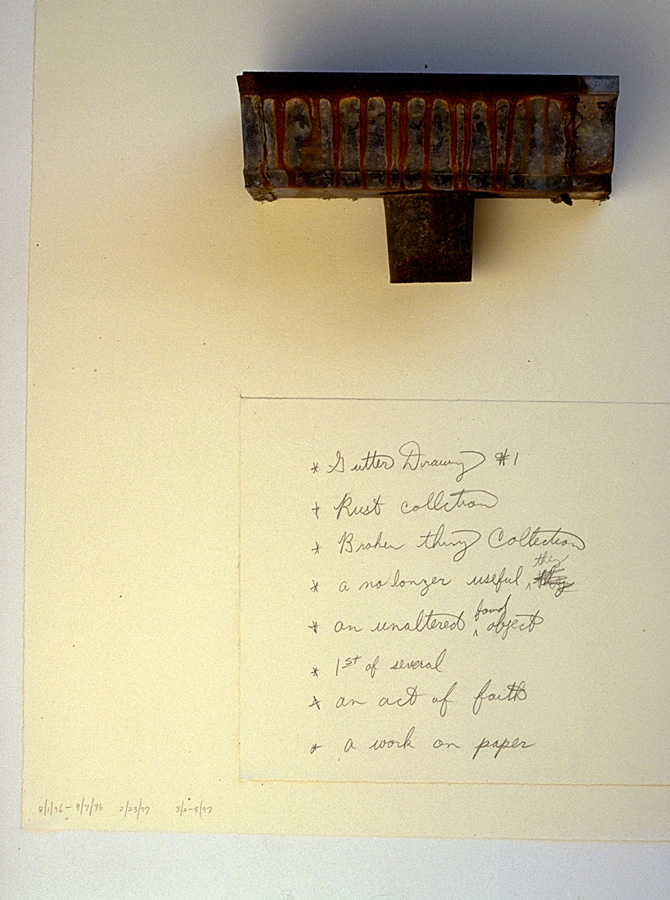 * Gutter Drawing #1
* Rust collction
* Broken thing Collection
* a no longer useful thing
* an unaltered found object
* 1st of several
* an act of faith
* a work on paper
8/1/96 - 9/7/96 2/23/97 3/2-8/97